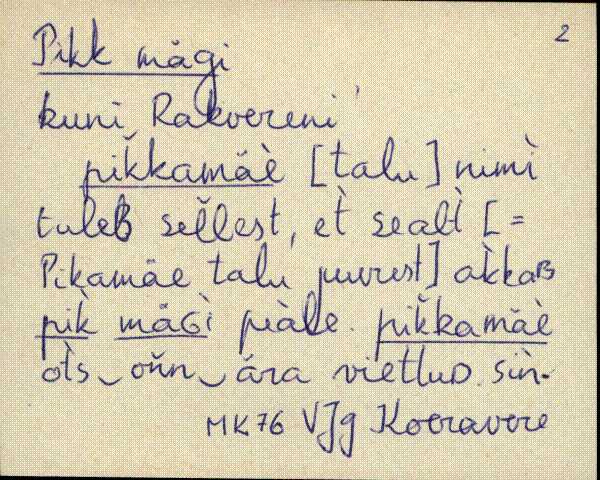 2
Pikk mägi
kuni Rakvereni
pik̆kamäè [talu] nimì
tuleB sel̆lest, et̀ sealt̀ [=
Pikamäe talu juurest] ak̀kaB
pik̀ mäGì piàle. pik̆kamäè
ot̀s‿on̆n‿ära viettuD. siǹ-
MK76 VJg Koeravere